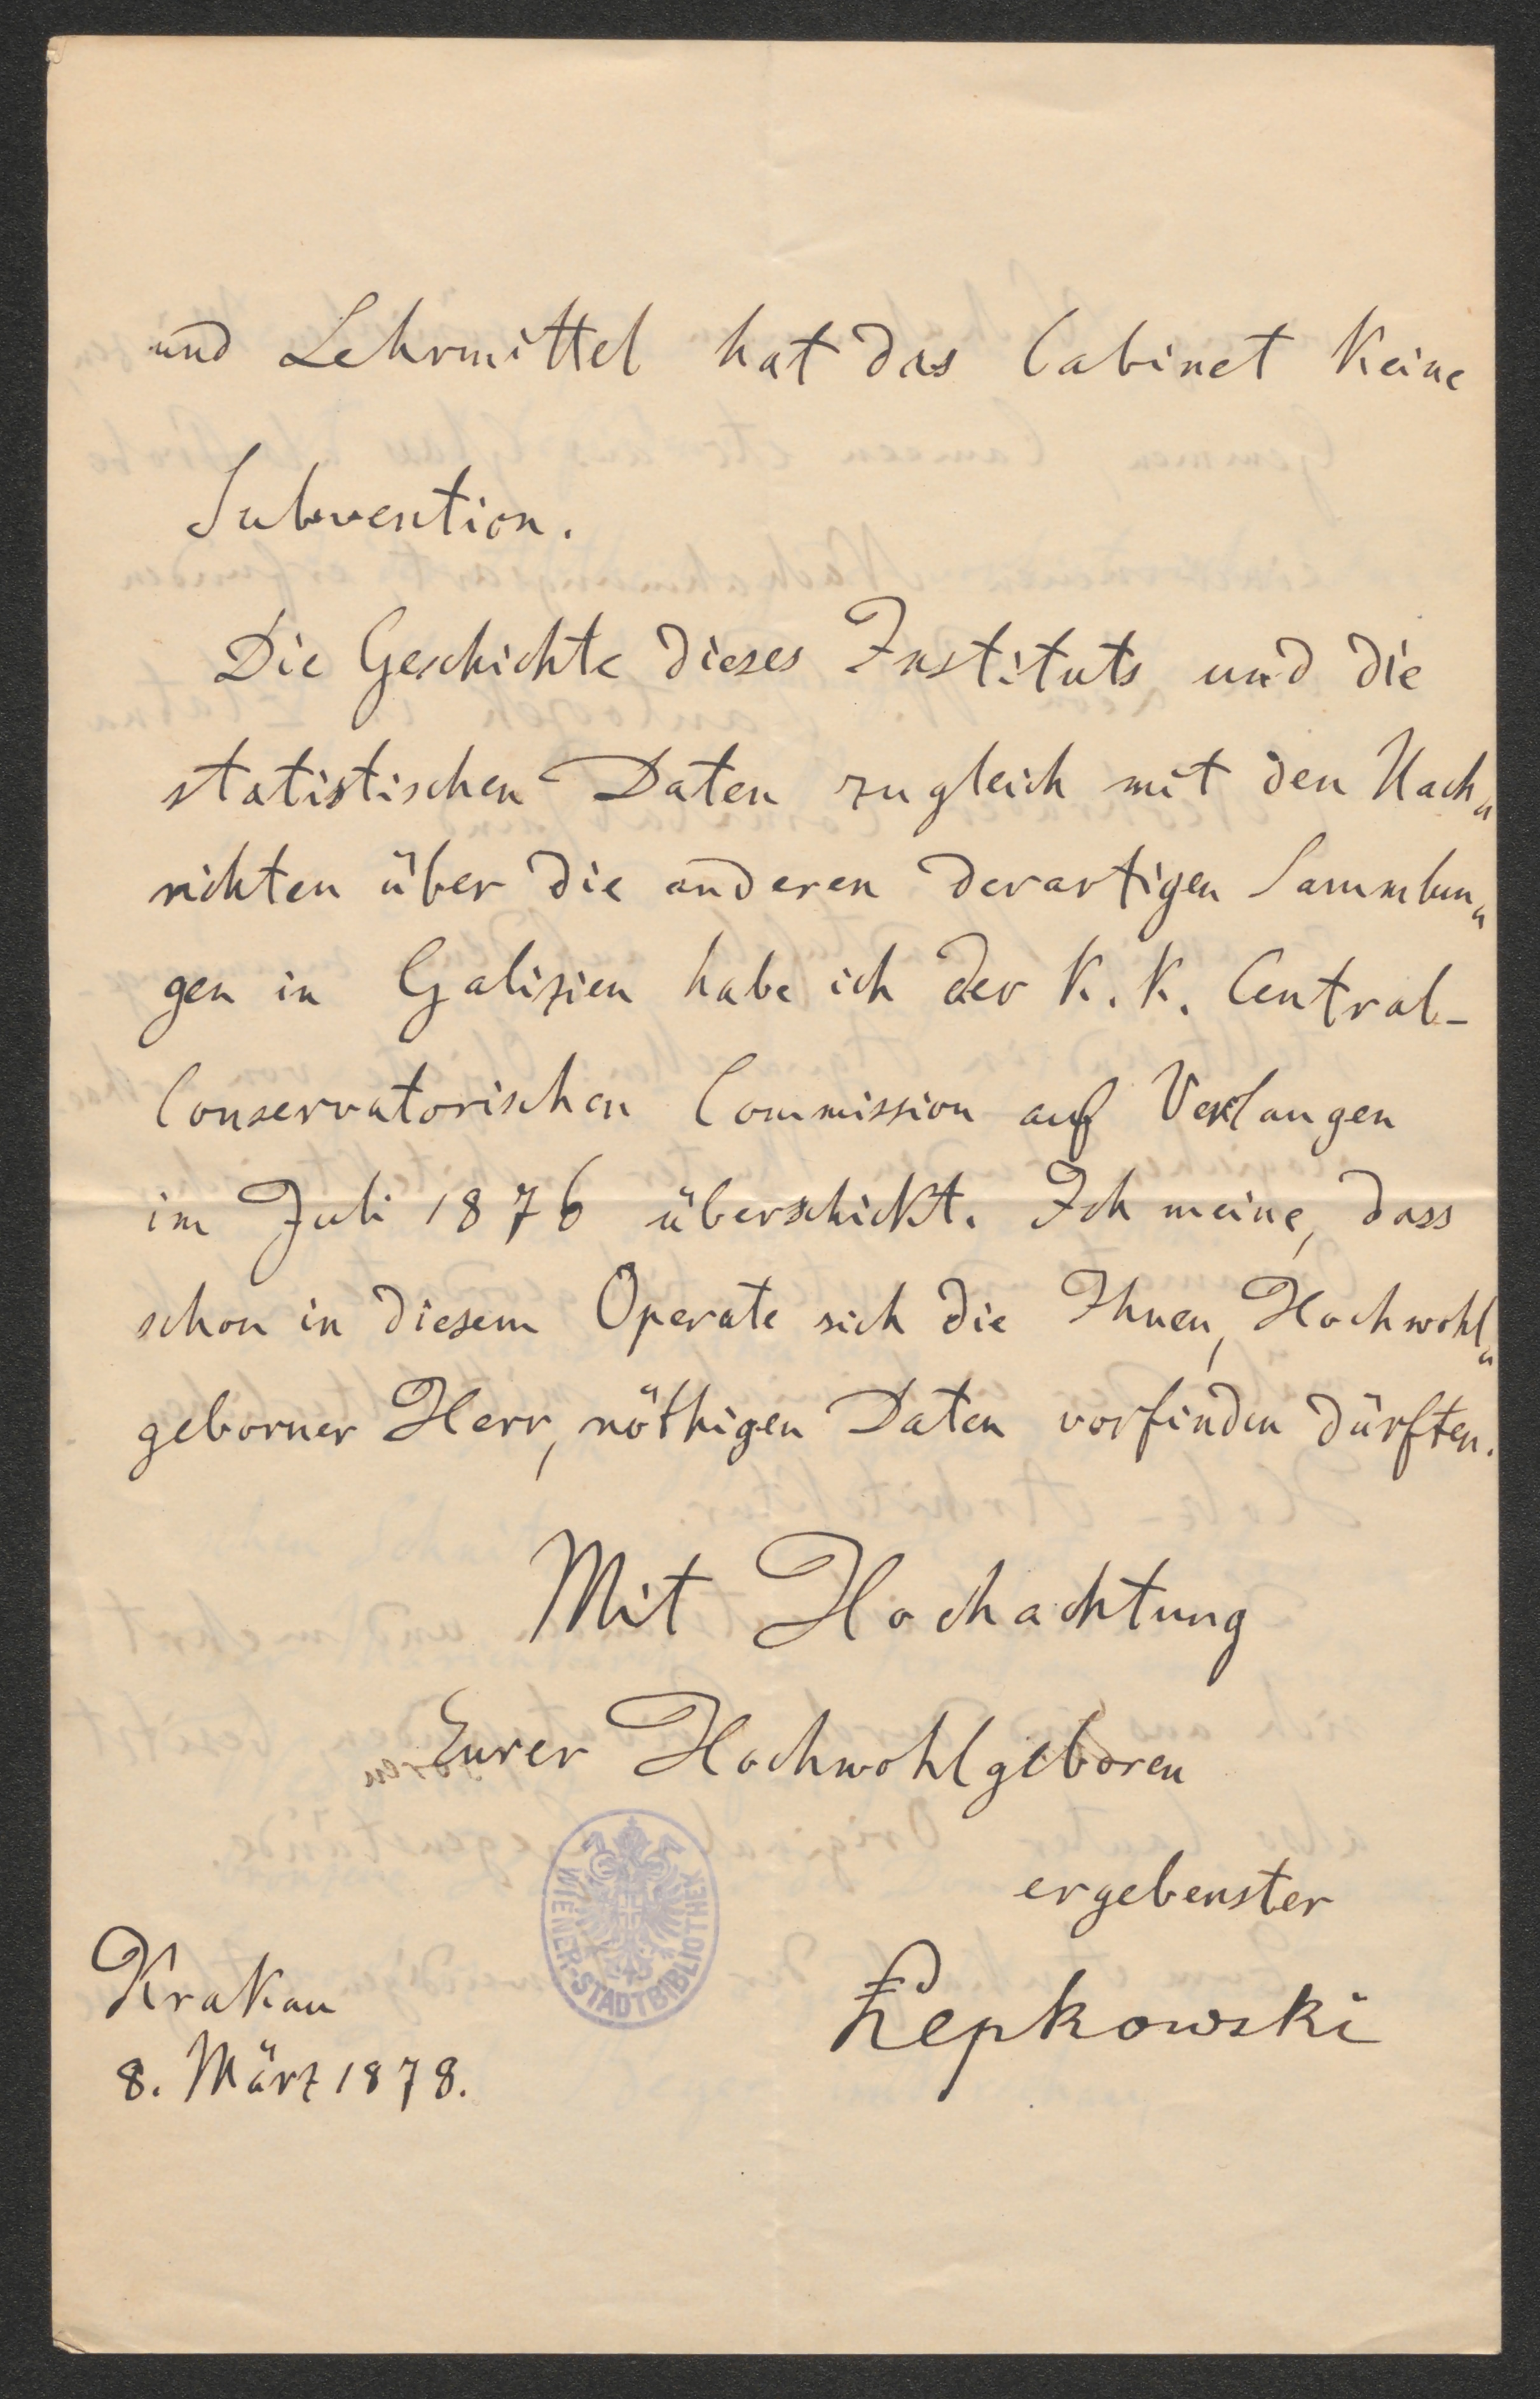 und Lehrmittel hat das Cabinet keine
Subvention.
Die Geschichte dieses Instituts und die
statistischen Daten zugleich mit den Nach„
richten über die anderen derartigen Sammlun„
gen in Galizien habe ich der K. K. Central-
Conservatorischen Commission auf Verlangen
im Juli 1876 überschickt. Ich meine, dass
schon in diesem Operate sich die Ihnen, Hochwohl„
geborner Herr, nöthigen Daten vorfinden dürften.
Mit Hochachtung
Eurer Hochwohlgeboren
ergebenster
Łepkowski
WIENER-STADTBIBLIOTHEK
Krakau
8. März 1878.